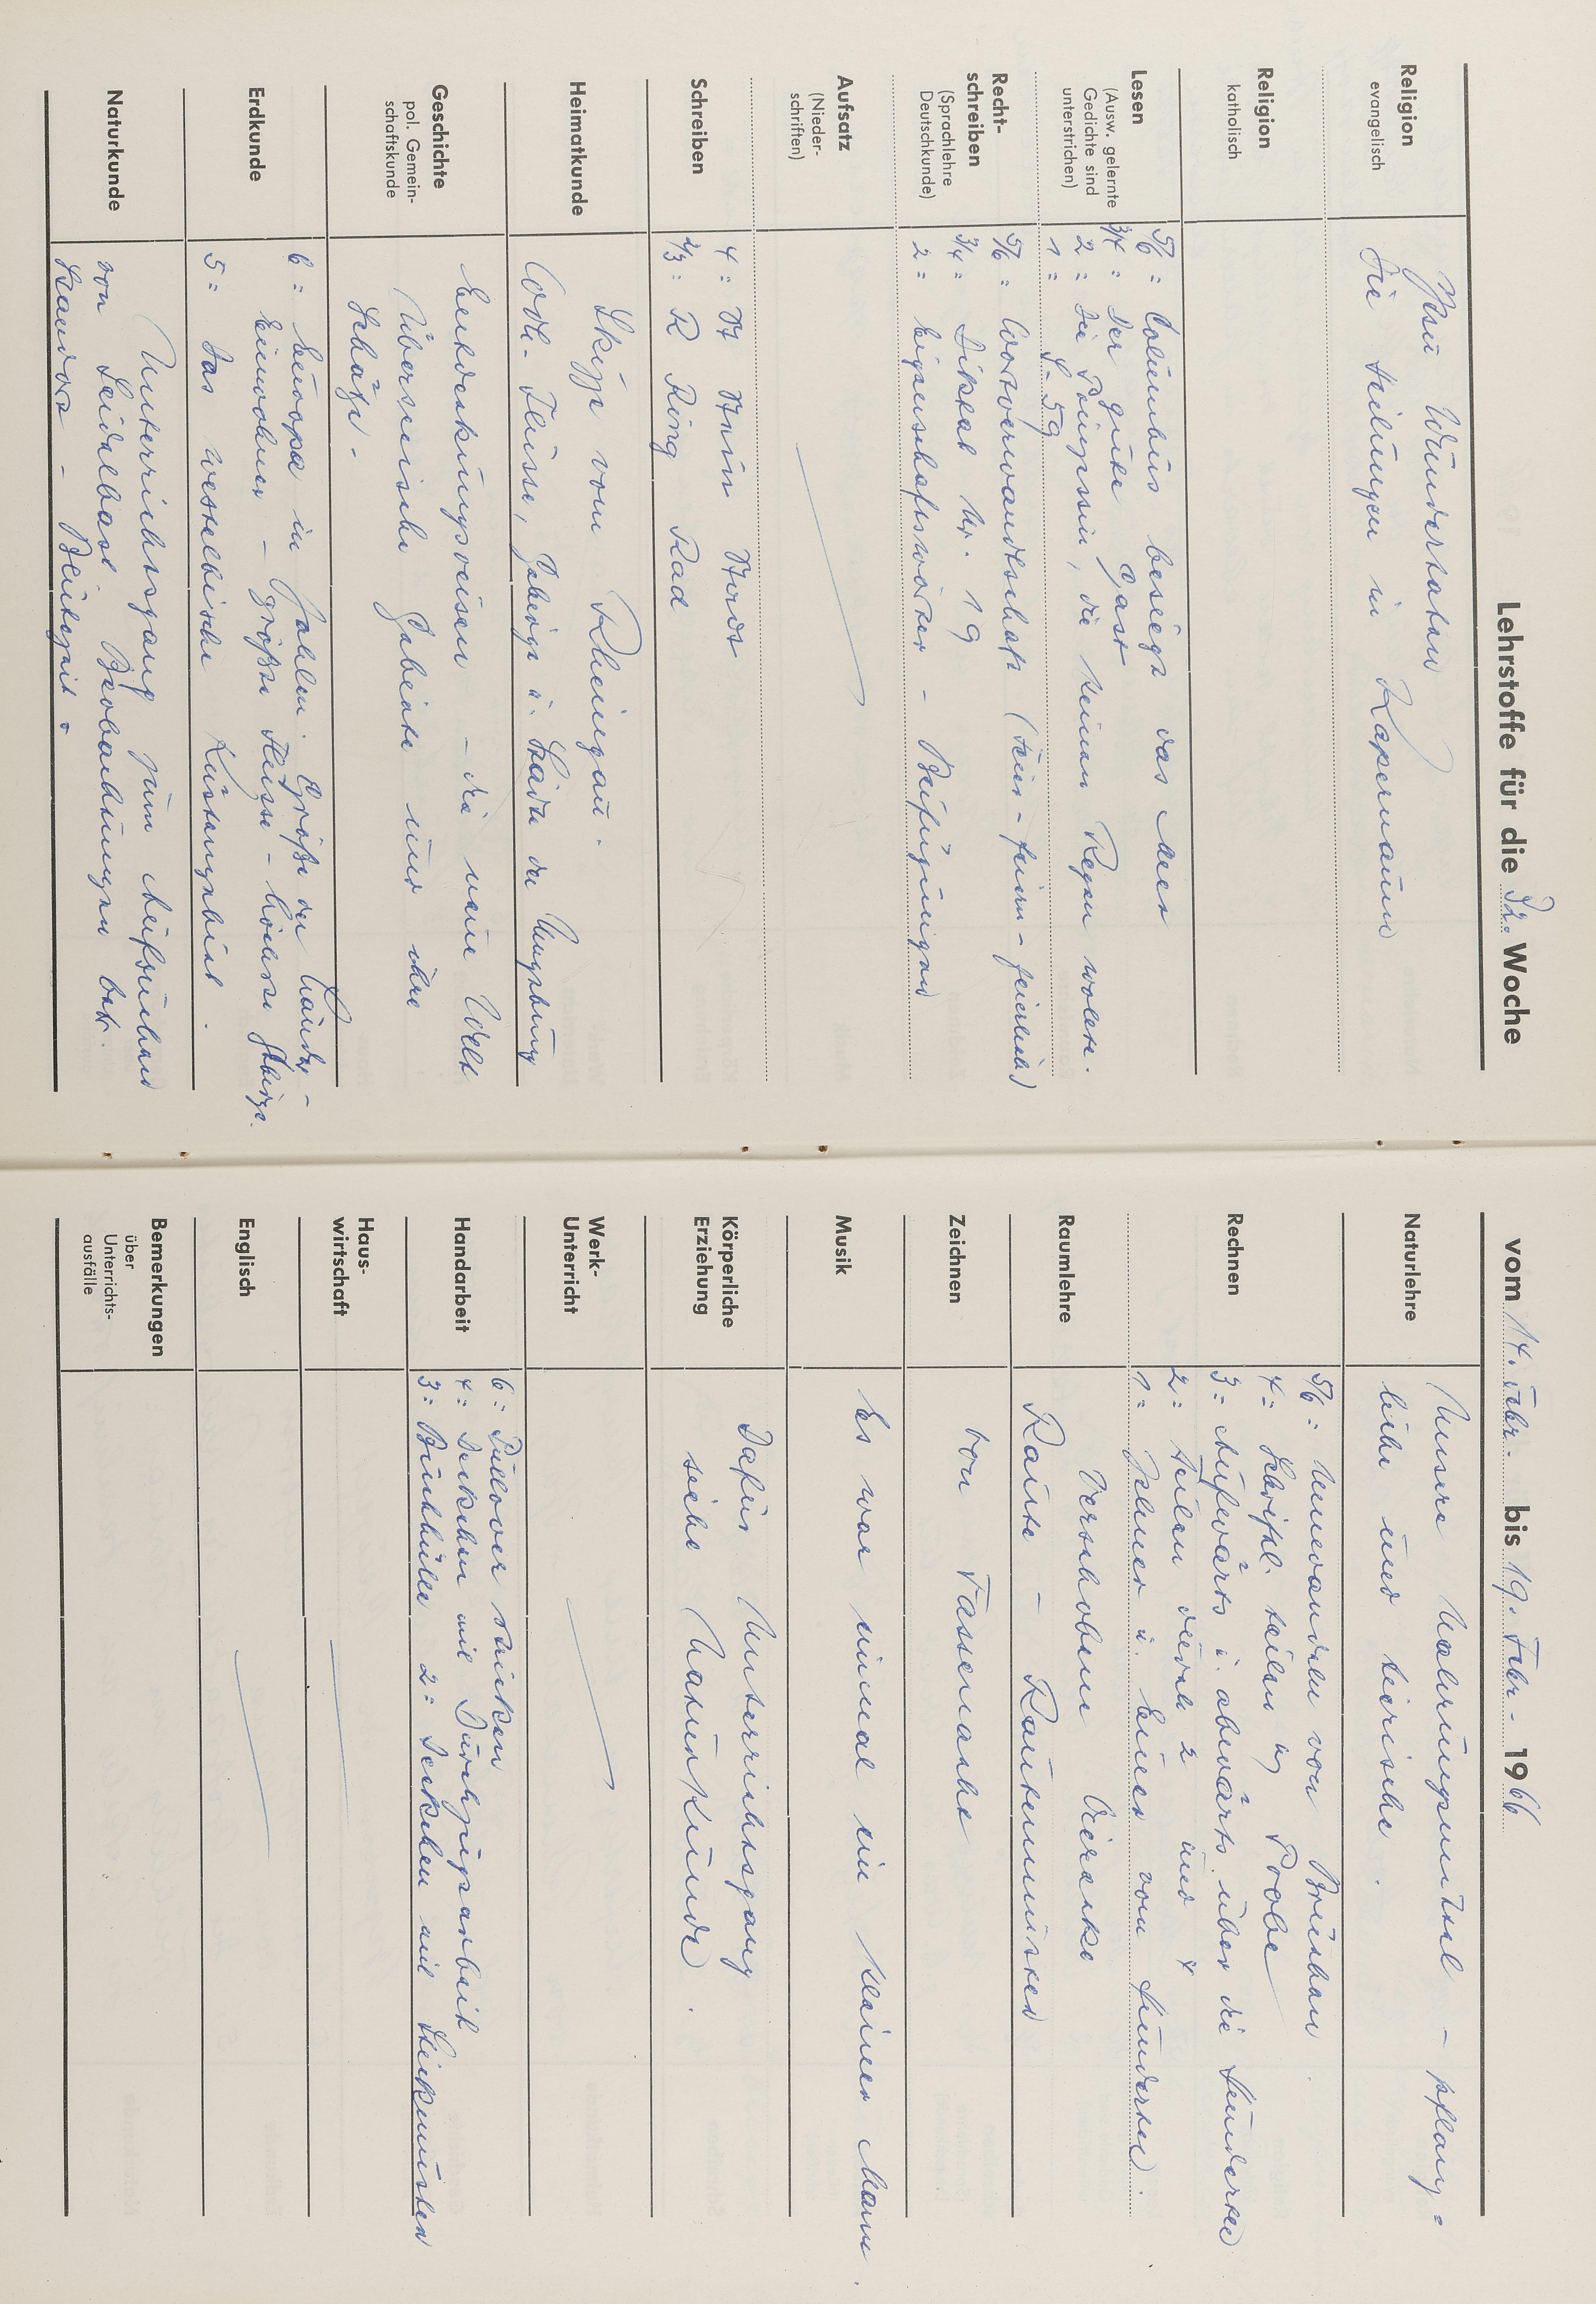 Lehrstoffe für die 32. Woche
Religion
evangelisch
Jesu Wundertaten
Die Heilungen in Kapernaum
Religion
katholisch
Lesen
(Ausw. gelernte
Gedichte sind
unterstrichen)
5/6 = Columbus besiegt das Meer
3/4 = Der gute Gast
2 = Die Prinzessin, die keinen Regen wollte.
1 = S. 59
Recht-
schreiben
(Sprachlehre
Deutschkunde)
5/6 = Wortverwandtschaft (Feier - feiern - feierlich)
3/4 = Diktat Nr. 19
2 = Eigenschaftswörter - Beifügungen
Aufsatz
(Nieder-
schriften)
Schreiben
4 = St Stein Stadt
2/3 = R Ring Rad
Heimatkunde
Skizze vom Rheingau.
Orte - Flüsse, Gebirge u. Städte der Umgebung
Geschichte
pol. Gemein-
schaftskunde
Entdeckungsreisen - die neue Welt
Überseeische Gebiete und ihre
Schätze.
Erdkunde
6 = Europa in Zahlen. Größe der Länder -
Einwohner - größte Flüsse - höchste Gebirge.
5 = Das westelbische Küstengebiet.
Naturkunde
Unterrichtsgang zum Aufsuchen
von Seidelbast. Beobachtungen betr.
Standort - Blütezeit.
vom 14. Febr. bis 19. Febr. 1966
Naturlehre
Unsere Nahrungsmittel - pflanz=
liche und tierische.
Rechnen
5/6 = Umwandeln von Brüchen
4 = Schriftl. teilen u. Probe
3 = Aufwärts u. abwärts über die Hunderter
2 = Teilen durch 2 und 4
1 = Zehner u. Einer vom Hunderter.
Raumlehre
Verschobene Vierecke
Raute - Rautenmuster
Zeichnen
Von Fassenacht
Musik
Es war einmal ein kleiner Mann.
Körperliche
Erziehung
Dafür Unterrichtsgang
siehe Naturkunde.
Werk-
Unterricht
Handarbeit
6 = Pullover stricken
4 = Deckchen mit Durchzugsarbeit
3 = Buchhülle 2 = Deckchen mit Stickmuster
Haus-
wirtschaft
Englisch
Bemerkungen
über
Unterrichts-
ausfälle